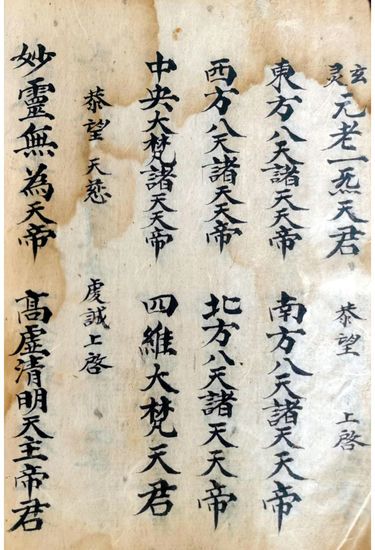 玄灵元老一炁天君 恭望 上啓
東方八天諸天天帝 南方八天諸天天帝
西方八天諸天天帝 北方八天諸天天帝
中央大梵諸天天帝 四維大梵天君
恭望 天慈 虔誠上啓
妙靈無為天帝 髙虛清明天主帝君